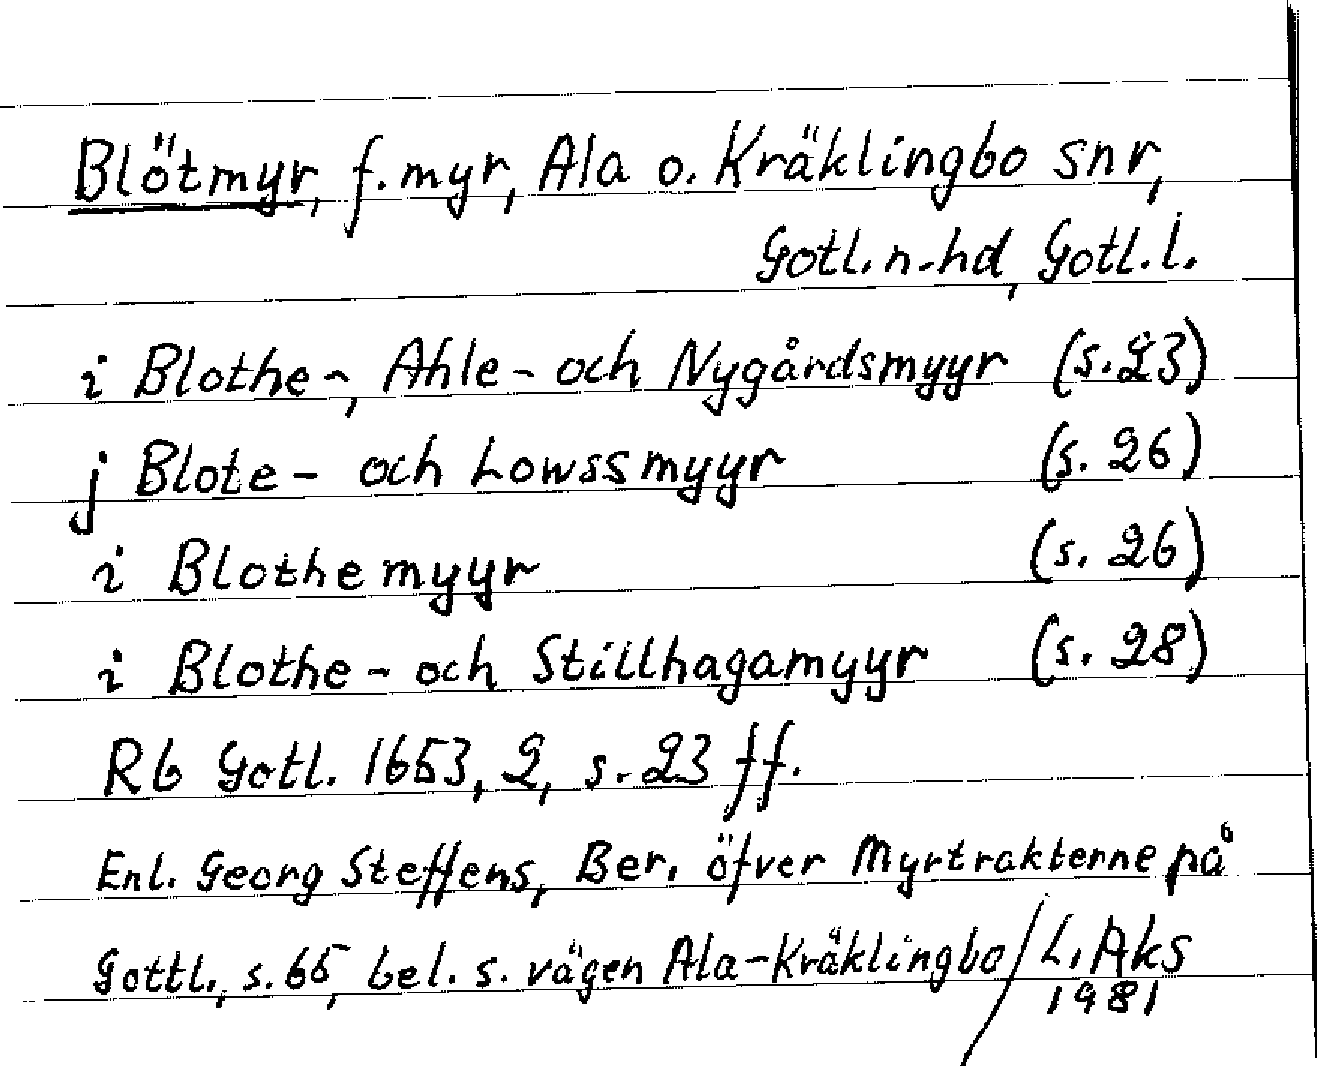 Blötmyr, f. myr, Ala o. Kräklingbo snr,
Gotl. n. hd, Gotl. l.
i Blothe-, Ahle- och Nygårdsmyyr (s. 23)
j Blote- och Lowssmyyr (s. 26)
i Blothemyyr (s. 26)
i Blothe- och Stillhagamyyr (s. 28)
Rb Gotl. 1653, 2, s. 23 ff.
Enl. Georg Steffens, Ber. öfver Myrtrakterne på
Gottl., s. 65, bel. s. vägen Ala-Kräklingbo / L. Aks
1981